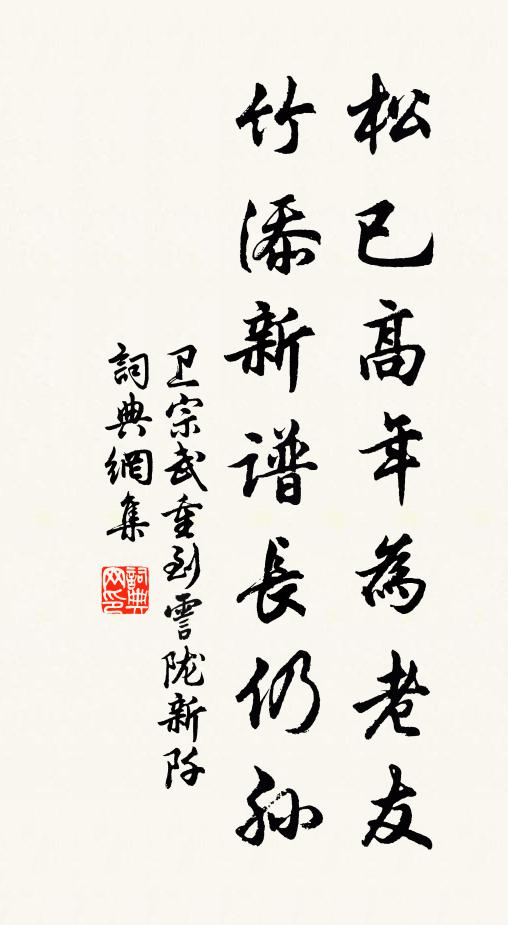 松已高年為老友
竹添新谱長仍孫
卫宗武重到霅陇新阡
詞典網集
詞典网印